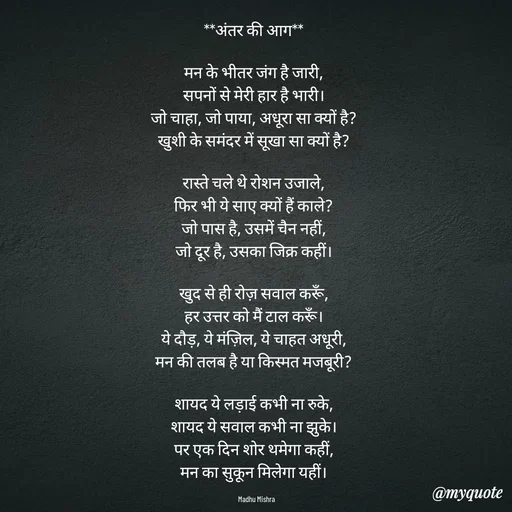 **अंतर की आग**
मन के भीतर जंग है जारी,
सपनों से मेरी हार है भारी।
जो चाहा, जो पाया, अधूरा सा क्यों है?
खुशी के समंदर में सूखा सा क्यों है?
रास्ते चले थे रोशन उजाले,
फिर भी ये साए क्यों हैं काले?
जो पास है, उसमें चैन नहीं,
जो दूर है, उसका जिक्र कहीं।
खुद से ही रोज़ सवाल करूँ,
हर उत्तर को मैं टाल करूँ।
ये दौड़, ये मंज़िल, ये चाहत अधूरी,
मन की तलब है या किस्मत मजबूरी?
शायद ये लड़ाई कभी ना रुके,
शायद ये सवाल कभी ना झुके।
पर एक दिन शोर थमेगा कहीं,
मन का सुकून मिलेगा यहीं।
Madhu Mishra
@myquote